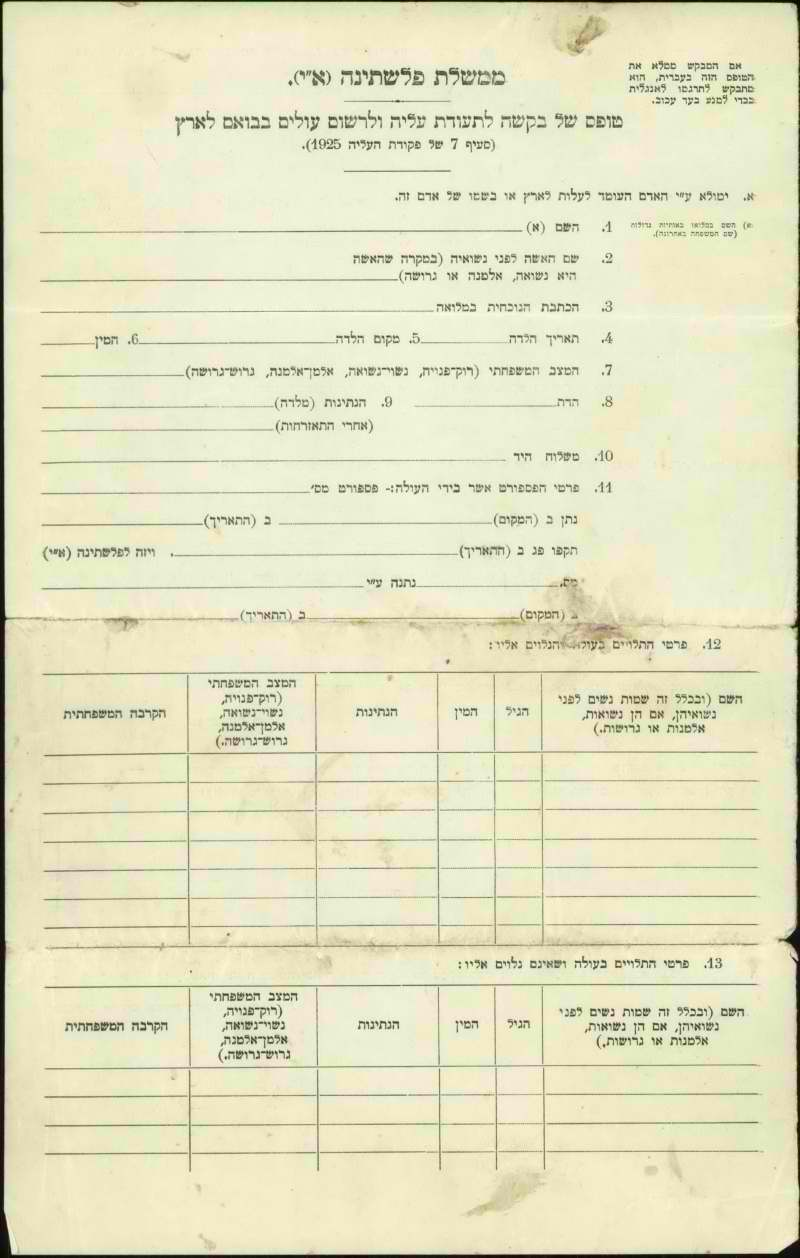 אם המבקש ממלא את
הטופס הזה בעברית, הוא
מתבקש לתרגמו לאנגלית
בכדי למנע בעד עכוב.
ממשלת פלשתינה (א״י).
טופס של בקשה לתעודת עליה ולרשום עולים בבואם לארץ
(סעיף 7 של פקודת העליה 1925).
א. ימולא ע״י האדם העומד לעלות לארץ או בשמו של אדם זה.
א) השם במלואו באותיות גדולות
(שם המשפחה באחרונה).
1. השם (א)
2. שם האשה לפני נשואיה (במקרה שהאשה
היא נשואה, אלמנה או גרושה)
3. הכתבת הנוכחית במלואה
4. תאריך הלדה 5. מקום הלדה 6. המין
7. המצב המשפחתי (רוק־פנויה, נשוי־נשואה, אלמן־אלמנה, גרוש־גרושה)
8. הדת 9. הנתינות (מלדה)
(אחרי התאזרחות)
10. משלוח היד
11. פרטי הפספורט אשר בידי העולה:- פספורט מס׳
נתן ב (המקום) ב (התאריך)
תקפו פג ב (התאריך) . ויזה לפלשתינה (א״י)
מס. נתנה ע״י
ב (המקום) ב (התאריך)
12. פרטי התלויים בעולה והנלוים אליו:
השם (ובכלל זה שמות נשים לפני
נשואיהן, אם הן נשואות,
אלמנות או גרושות.)
הגיל
המין
הנתינות
המצב המשפחתי
(רוק־פנויה,
נשוי־נשואה,
אלמן־אלמנה,
גרוש־גרושה.)
הקרבה המשפחתית
13. פרטי התלויים בעולה ושאינם נלוים אליו:
השם (ובכלל זה שמות נשים לפני
נשואיהן, אם הן נשואות,
אלמנות או גרושות.)
הגיל
המין
הנתינות
המצב המשפחתי
(רוק־פנויה,
נשוי־נשואה,
אלמן־אלמנה,
גרוש־גרושה.)
הקרבה המשפחתית